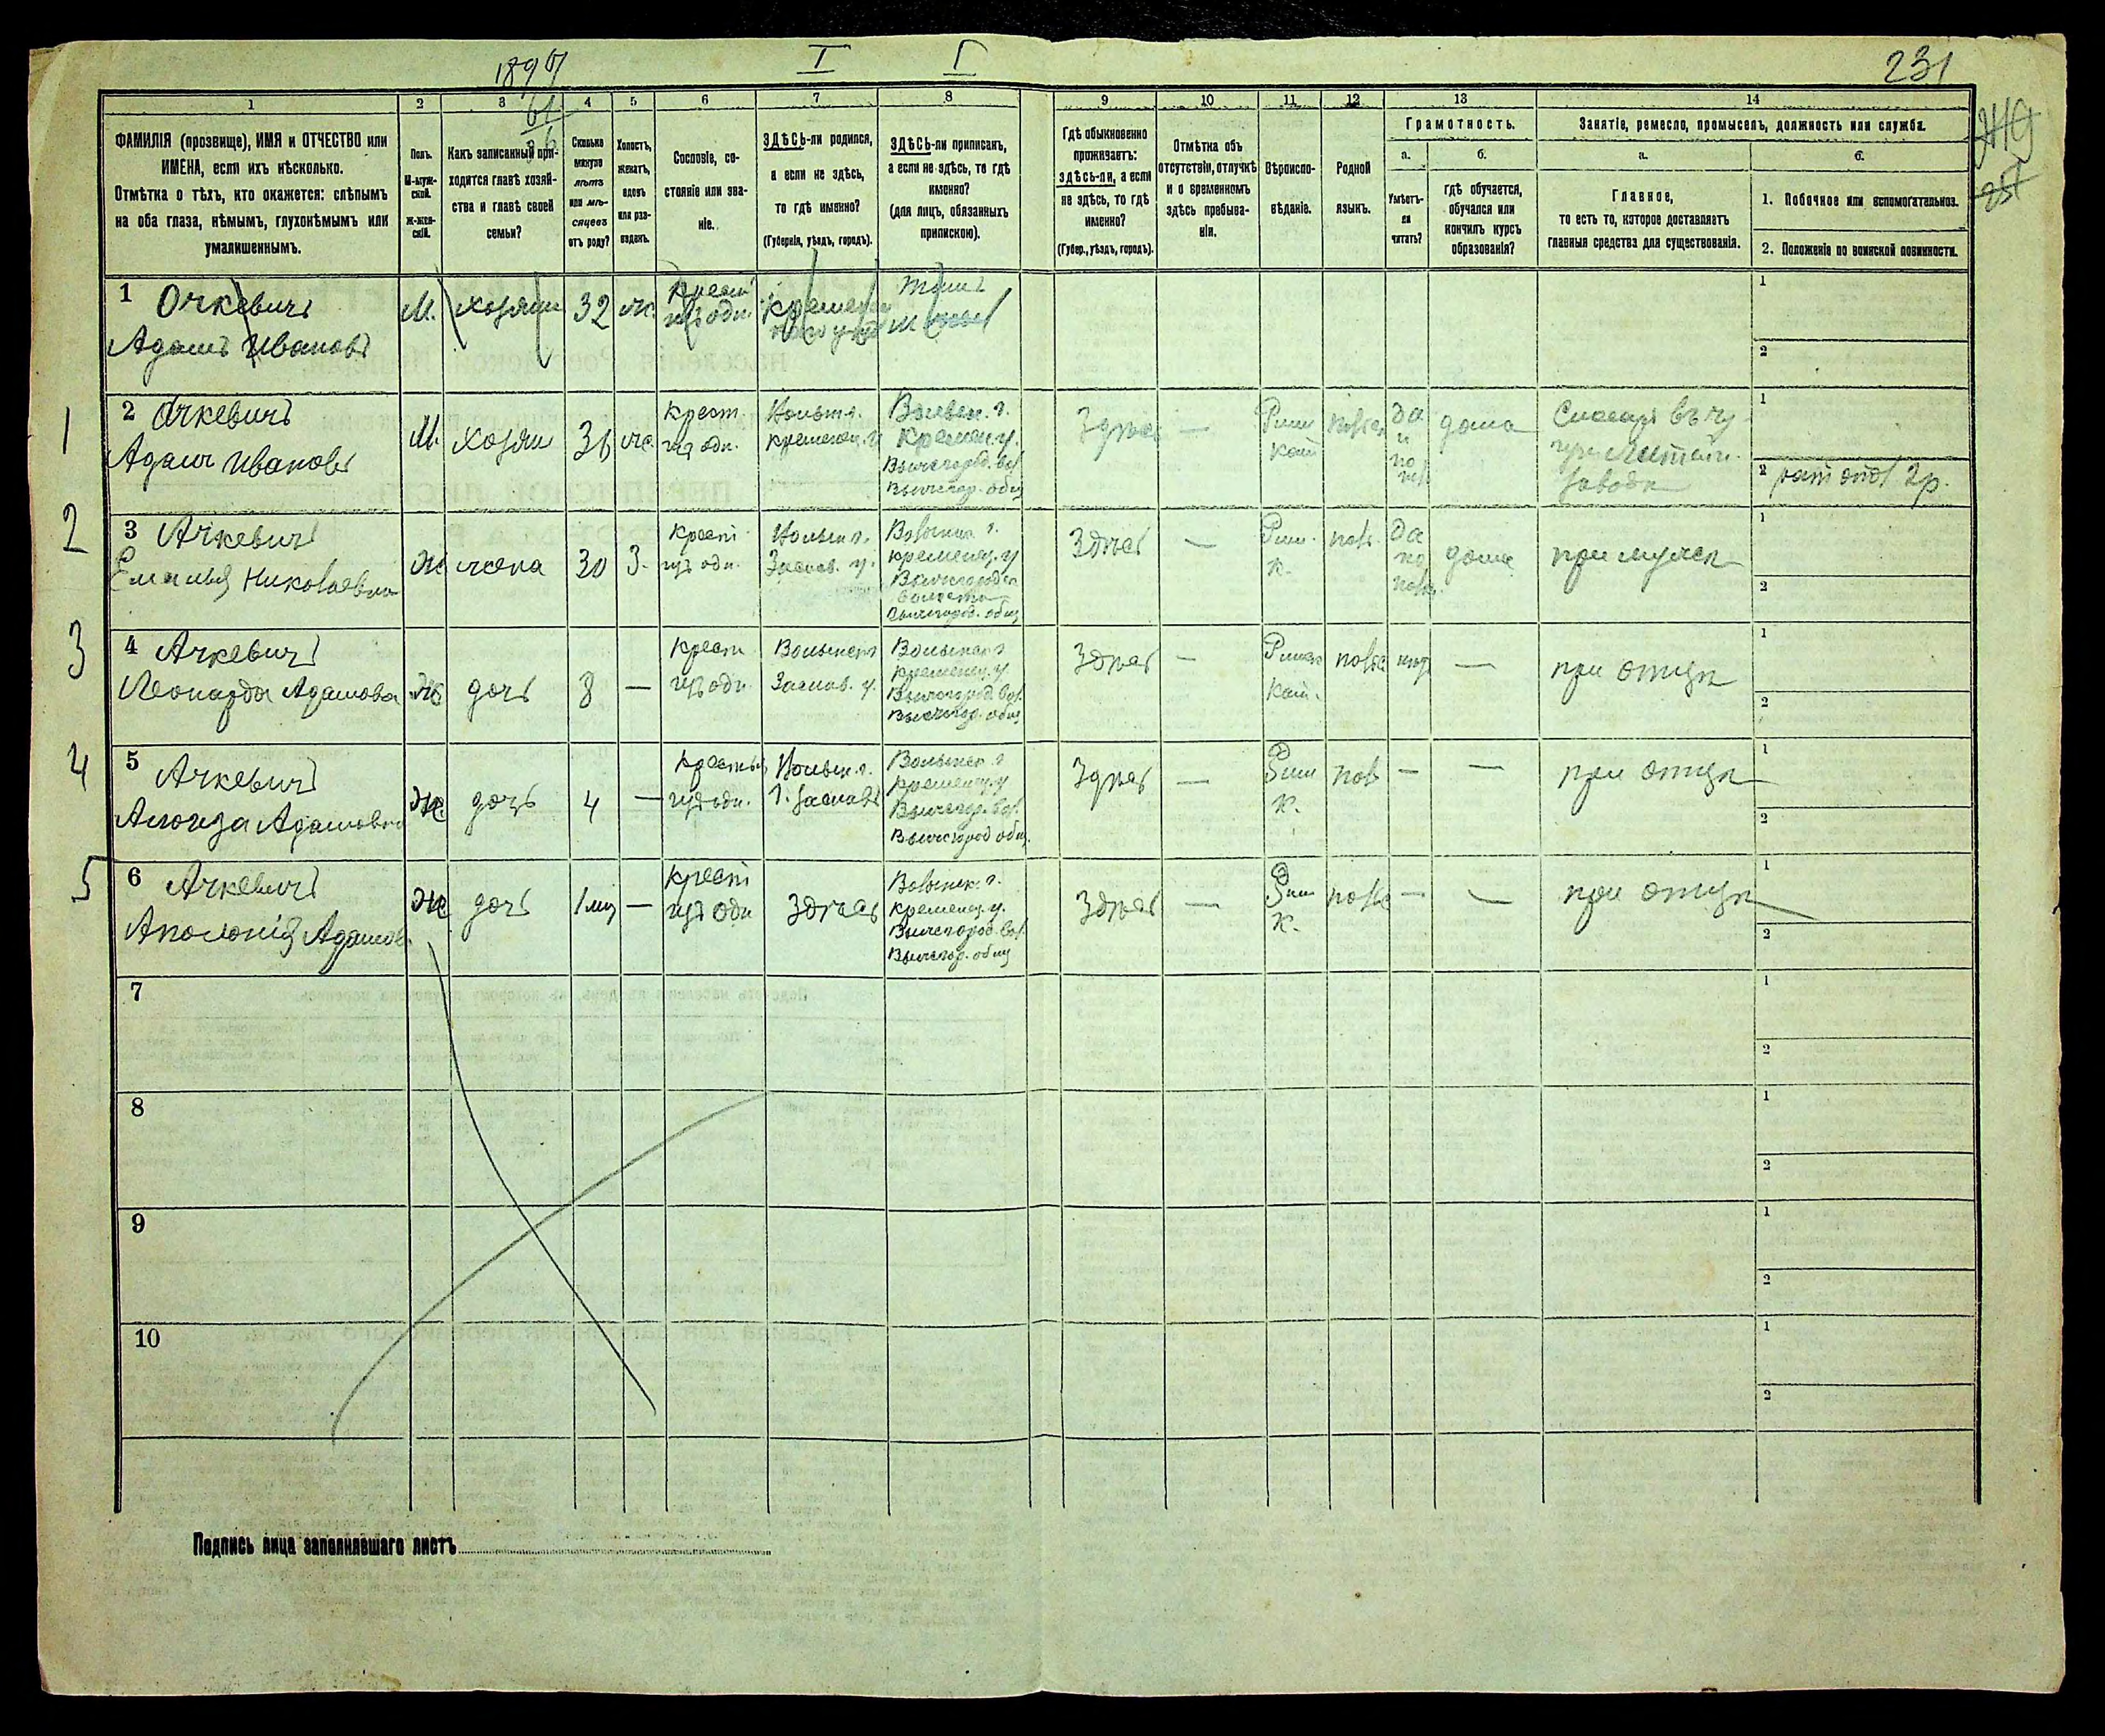 1897
I
Г
231
61
1
2
3
4
5
6
7
8
9
10
11
12
13
14
ФАМИЛІЯ (прозвище), ИМЯ и ОТЧЕСТВО или
ИМЕНА, если ихъ нѣсколько.
Отмѣтка о тѣхъ, кто окажется: слѣпымъ
на оба глаза, нѣмымъ, глухонѣмымъ или
умалишеннымъ.
Полъ.
М-муж-
ской.
Ж-жен-
скій.
Какъ записанный при-
ходится главѣ хозяй-
ства и главѣ своей
семьи?
Сколько
минуло
лѣтъ
или мѣ-
сяцевъ
отъ роду?
Холостъ,
женатъ,
вдовъ
или раз-
веденъ.
Сословіе, со-
стояніе или зва-
ніе.
ЗДѢСЬ-ли родился,
а если не здѣсь,
то гдѣ именно?
(Губернія, уѣздъ, городъ).
ЗДѢСЬ-ли приписанъ,
а если не здѣсь, то гдѣ
именно?
(для лицъ, обязанныхъ
припискою).
Гдѣ обыкновенно
проживаетъ:
здѣсь-ли, а если
не здѣсь, то гдѣ
именно?
(Губер., уѣздъ, городъ).
Отмѣтка объ
отсутствіи, отлучкѣ
и о временномъ
здѣсь пребыва-
ніи.
Вѣроиспо-
вѣданіе.
Родной
языкъ.
Грамотность.
а.
Умѣетъ-
ли
читать?
б.
гдѣ обучается,
обучался или
кончилъ курсъ
образованія?
Занятіе, ремесло, промыселъ, должность или служба.
а.
Главное,
то есть то, которое доставляетъ
главныя средства для существованія.
б.
1. Побочное или вспомогательное.
2. Положеніе по воинской повинности.
1 Очкевичъ
Адамъ Ивановъ
М.
хозяин
32
ж.
Крест
из одн.
1
2
1
2 Ачкевичъ
Адам Ивановъ
М.
хозяин
36
ж.
Крест.
из одн.
Кременец. у.
Волын. г.
Кремен. у.
Вышегород. вол.
Вышегор. общ
Здѣсь
—
Рим
кат
польск
Да
и
по
пол
дома
Слесарь въ чу
завода
1
2
2р.
2
3 Ачкевичъ
Емилья Николаевна
Ж
жена
30
З.
Крест
из одн.
Волын г.
Заслав. у.
Волынск. г.
Кременец. у
Вышегородск
волости
Вышегород. общ
Здѣсь
—
Рим.
к.
поль.
Да
по
польс.
дома
при мужѣ
1
2
3
4 Ачкевичъ
Леонарда Адамова
Ж
дочь
8
—
Крест
из одн
Волынск г
Заслав. у.
Волынск г
Кременец. у
Вышегород. вол.
Вышегор. общ
Здѣсь
—
Римск
кат.
польс
нѣт
—
при отцѣ
1
2
4
5 Ачкевичъ
Алоиза Адамовна
Ж.
дочь
4
—
Крестья
из одн.
Волын. г.
г. Заславъ
Волынск. г
Кременец. у
Вышегор. вол.
Вышегород общ.
Здѣсь
—
Рим
к.
поль
—
—
при отцѣ
1
2
5
6 Ачкевичъ
Аполонія Адамов.
Ж
дочь
1 мѣс
—
Крест
из одн
Здѣсь
Волынск. г.
Кременец. у.
Вышегород. вол.
Вышегор. общ
Здѣсь
—
Рим
к.
польс
—
—
при отцѣ
1
2
7
1
2
8
1
2
9
1
2
10
1
2
Подпись лица заполнявшаго листъ